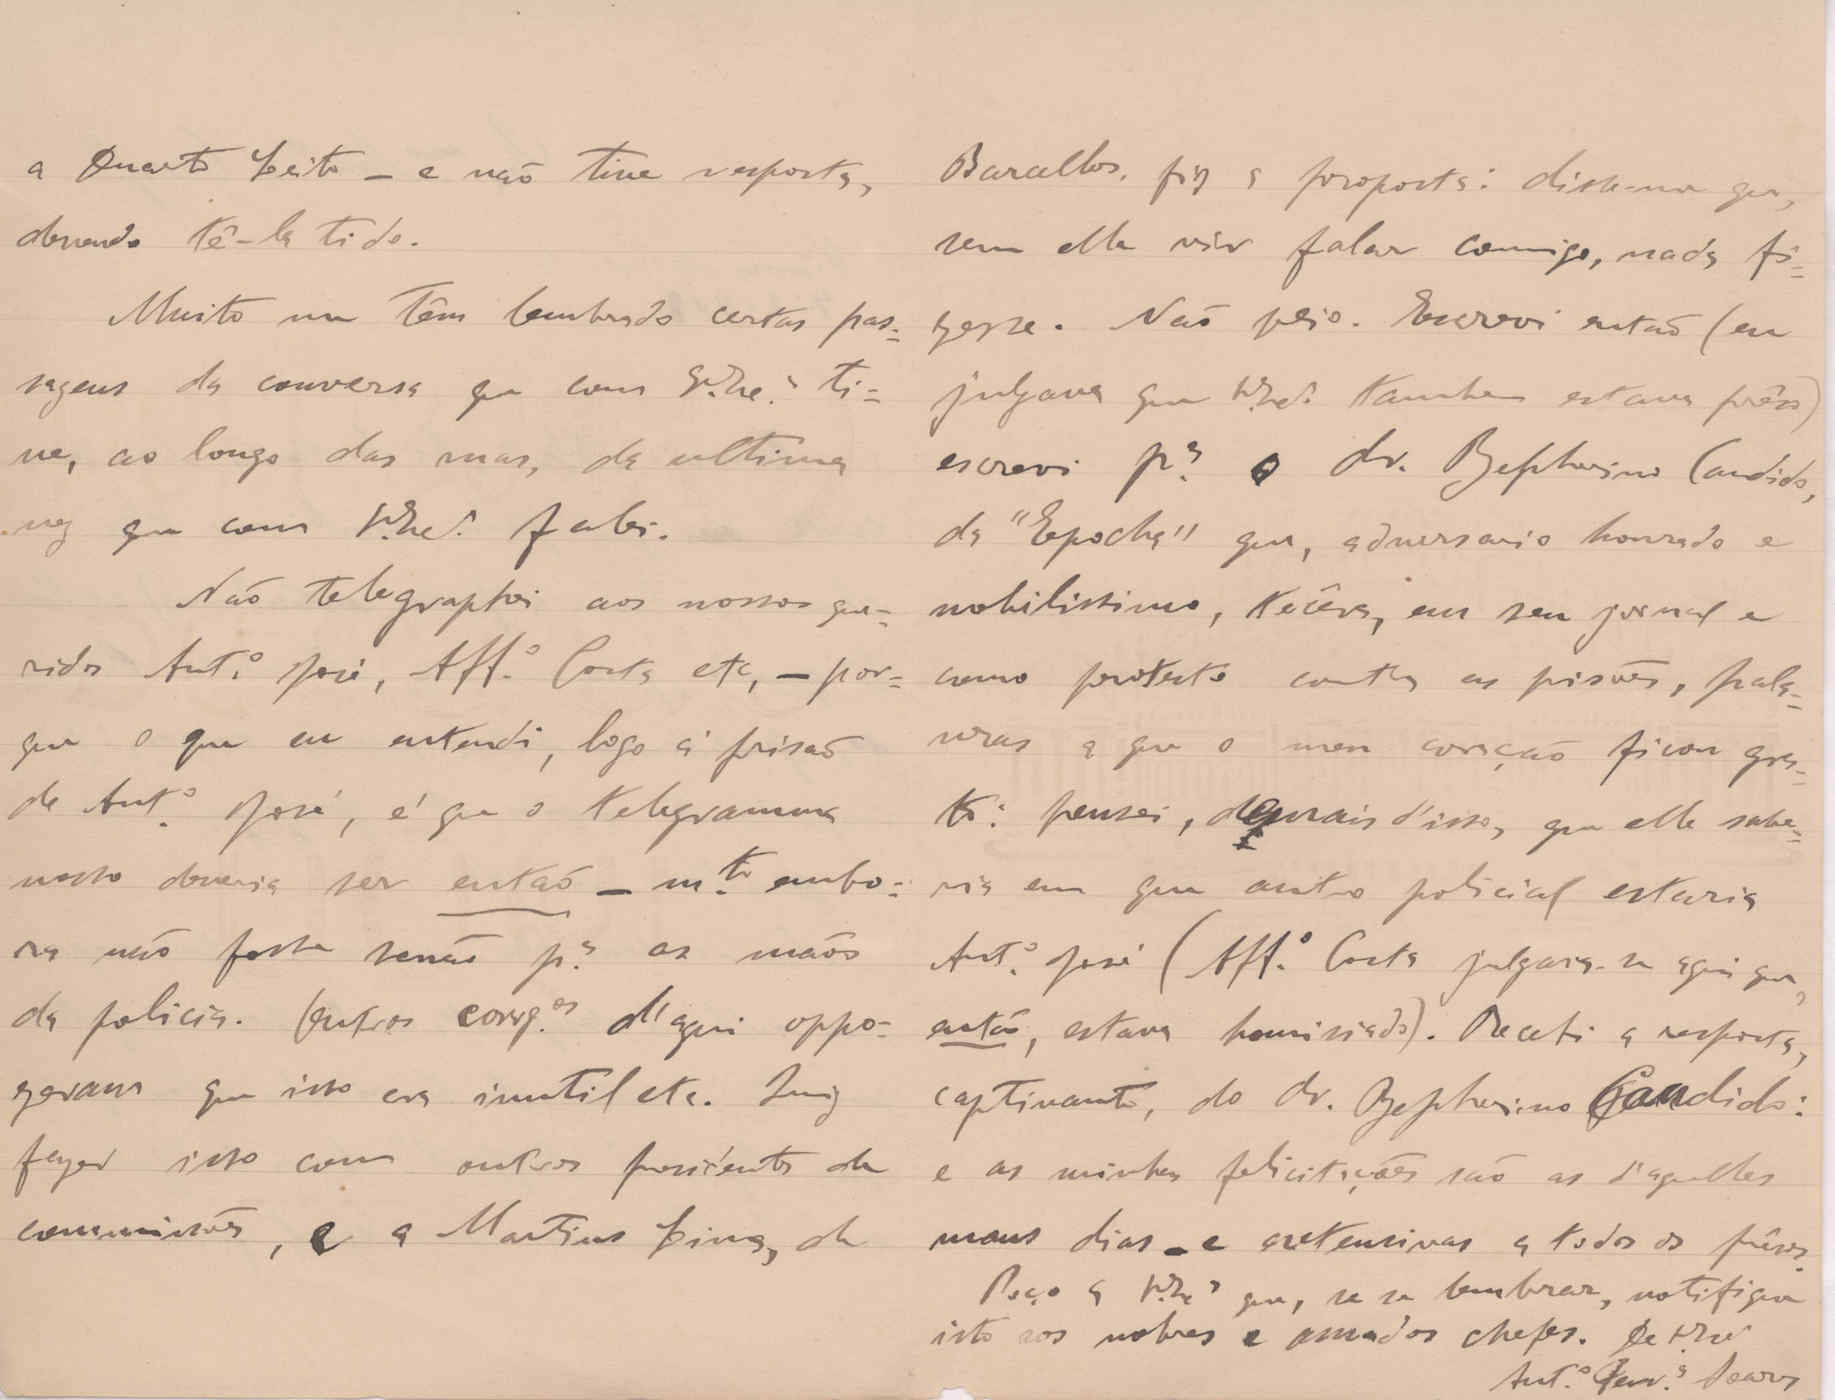 a Duarte Leite — e não tive resposta,
devendo tê-la tido.
Muito me têm lembrado certas pas=
sagens da conversa que com V. Ex.ª ti=
ve, ao longo das ruas, da ultima
vez que com V. Ex.ª falei.
Não telegraphei aos nossos que=
ridos Ant.º José, Aff.º Costa etc, — por=
que o que eu entendi, logo á prisão
de Ant.º José, é que o telegramma
nosso deveria ser então — m.to embo=
ra não fosse senão p.ª as mãos
da policia. Outros corrg.os d'aqui oppo=
zeram que isso era inutil etc. Quiz
fazer isso com outros presidentes de
commissões, e a Martins Lima, de
Barcellos, fiz a proposta: disse-me que,
sem elle vir falar comigo, nada fi=
zesse. Não veio. Escrevi então (eu
julgava que V. Ex.ª tambem estava prêso)
escrevi p.ª o dr. Zephyrino Candido,
da "Epocha" que, adversario honrado e
nobilissimo, tecêra, em seu jornal e
como protesto contra as prisões, pala=
vras a que o meu coração ficou gra=
to: pensei, demais d'isso, que elle sabe=
ria em que antro policial estaria
Ant.º José (Aff.º Costa julgava-se aqui que,
então, estava homisiado). Recebi a resposta,
captivante, do dr. Zephyrino Candido:
e as minhas felicitações são as d'aquelles
maus dias — e extensivas a todos os prêsos.
Peço a V. Ex.ª que, se se lembrar, notifique
isto aos nobres e amados chefes. De V. Ex.ª
Ant.º Ferr.ª Soares